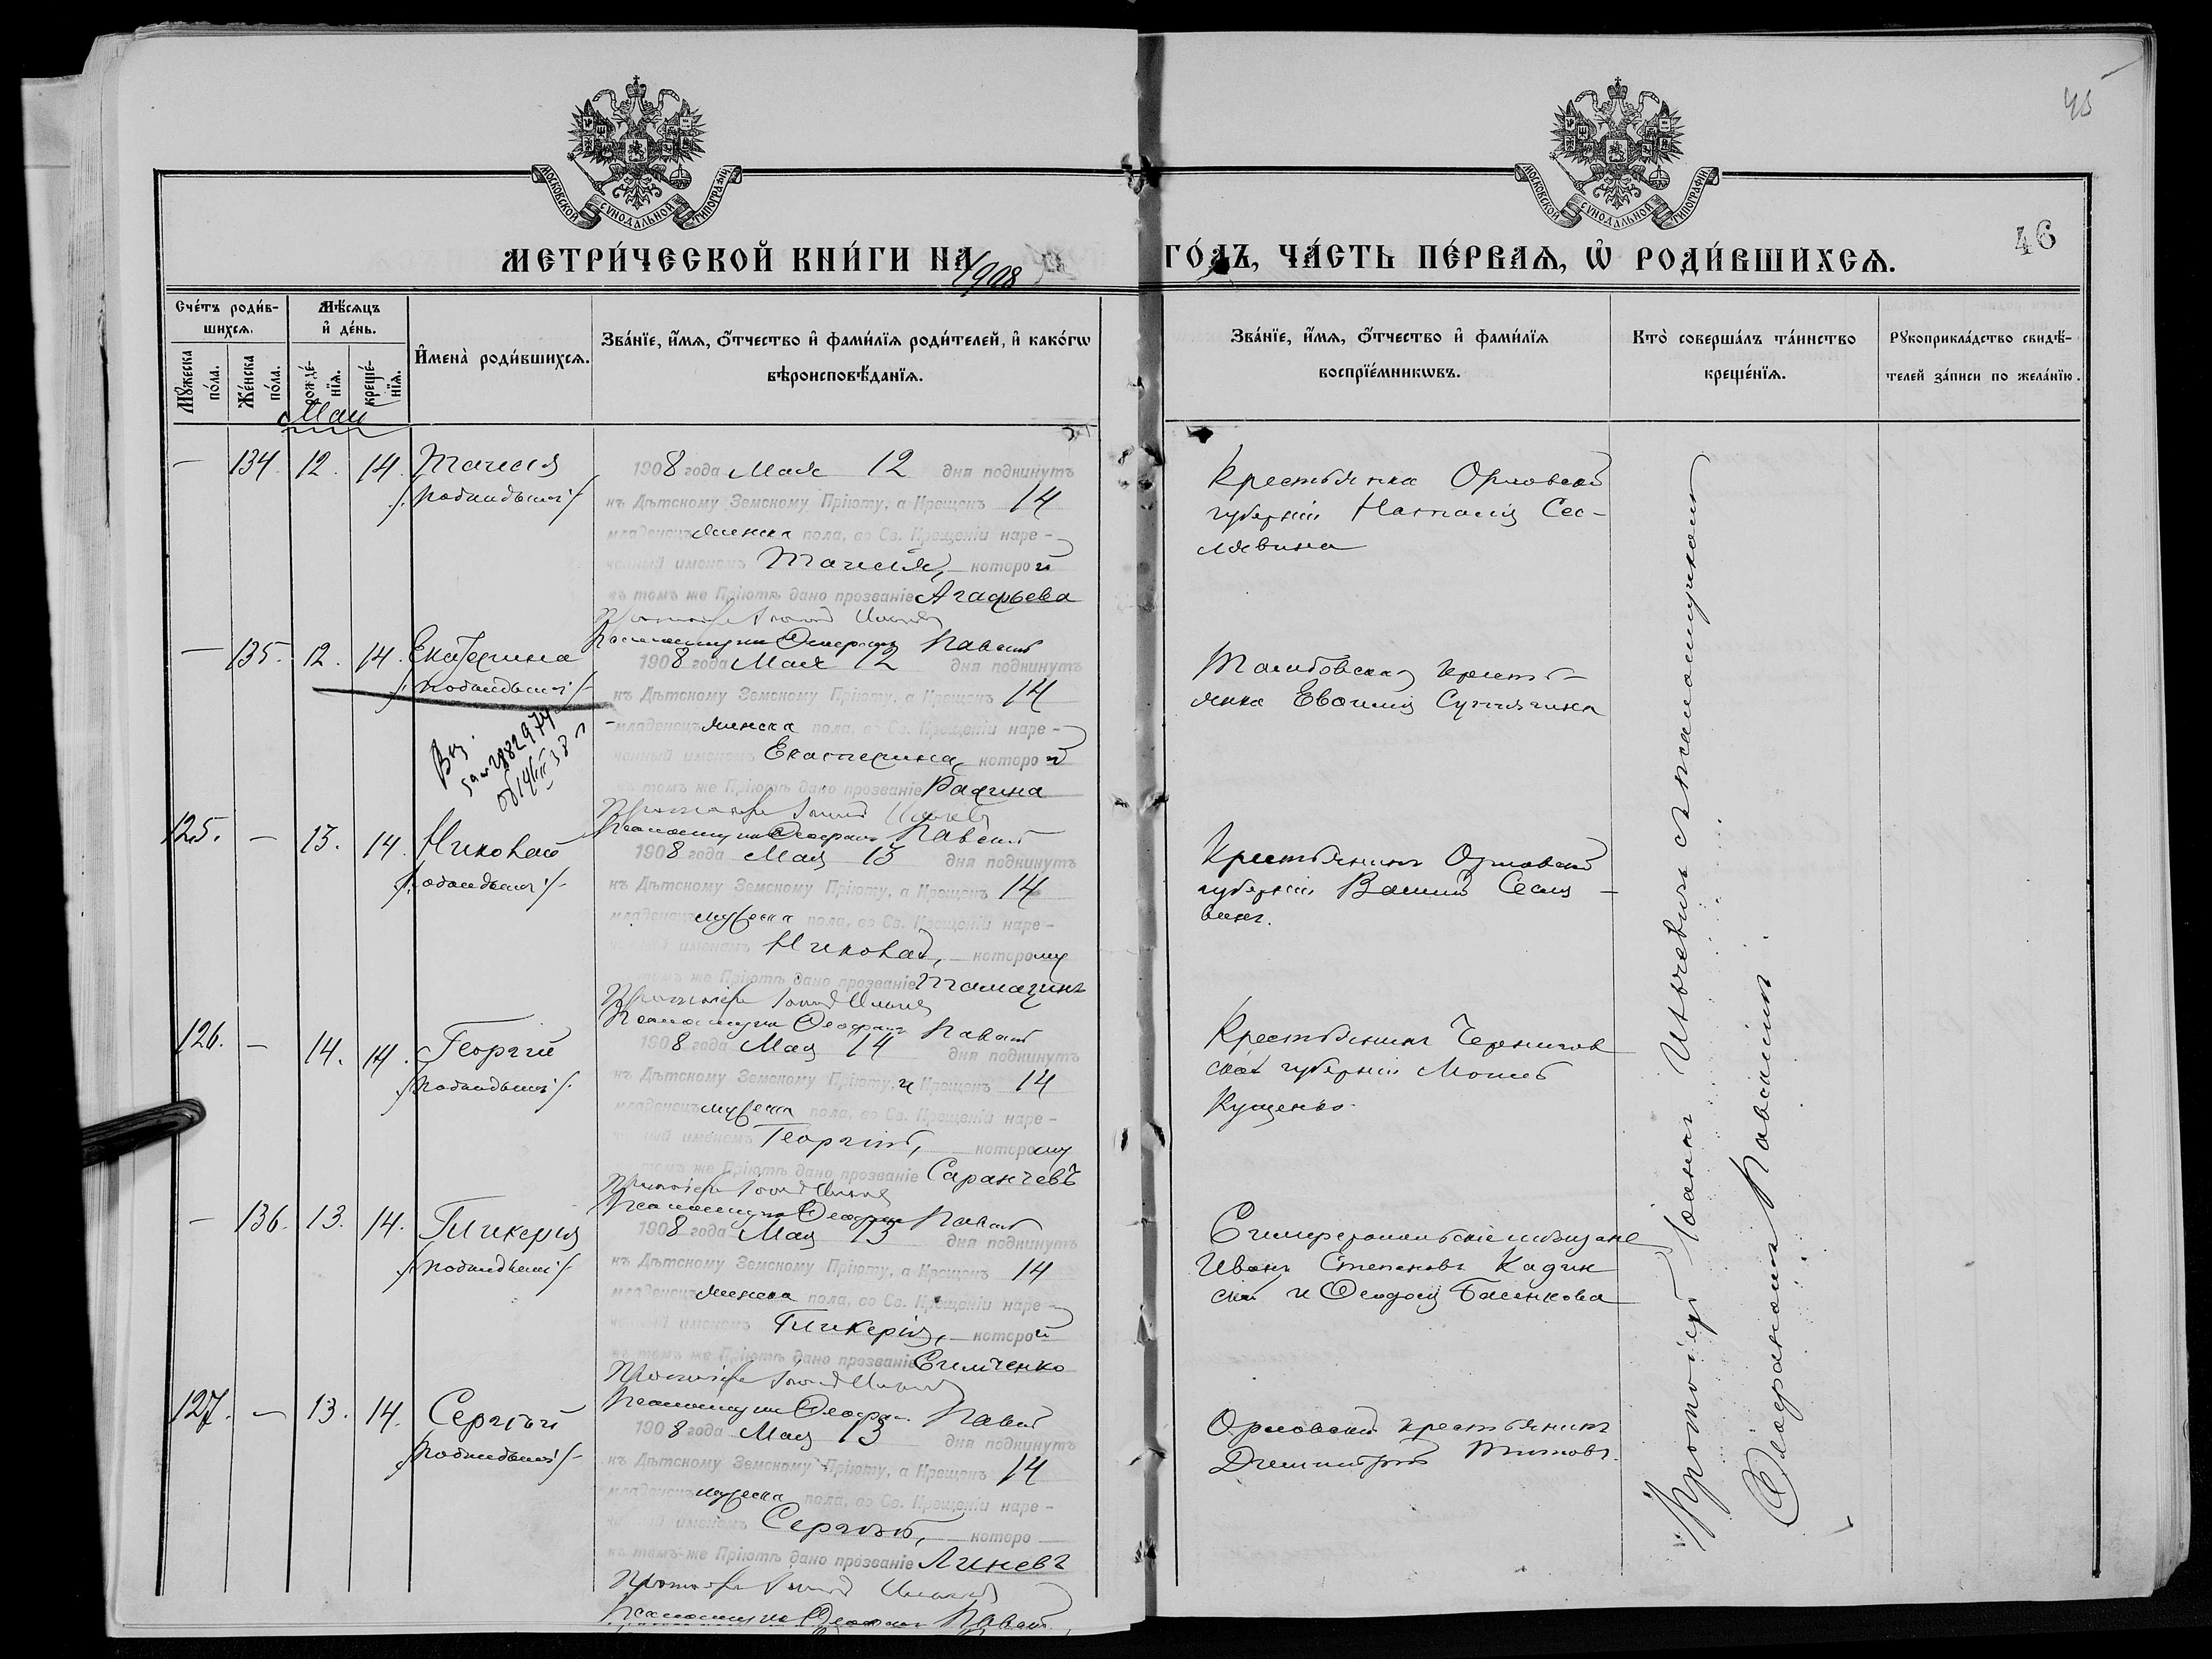 45
46
МОСКОВСКОЙ СѴНОДАЛЬНОЙ ТИПОГРАФІИ
МОСКОВСКОЙ СѴНОДАЛЬНОЙ ТИПОГРАФІИ
МЕТРИ́ЧЕСКОЙ КНИ́ГИ НА 1908 ГО́ДЪ, ЧА́СТЬ ПЕ́РВАѦ, Ѡ҆ РОДИ́ВШИХСѦ.
Сче́тъ роди́в-
шихсѧ.
Мꙋ́жеска по́ла.
Же́нска по́ла.
Мѣ́сѧцъ
и҆ де́нь.
рожде́-нїѧ.
креще́-нїѧ.
И҆мена̀ роди́вшихсѧ.
Зва́нїе, и҆́мѧ, ѻ҆́тчество и҆ фами́лїѧ роди́телей, и҆ како́гѡ
вѣроисповѣ́данїѧ.
Зва́нїе, и҆́мѧ, ѻ҆́тчество и҆ фами́лїѧ
воспрїе́мникѡвъ.
Кто̀ соверша́лъ та́инство
креще́нїѧ.
Рꙋкоприкла́дство свидѣ́-
телей за́писи по жела́нїю.
Май
— 134. 12. 14. Таисія
/:подкидышъ:/
1908 года Мая 12 дня подкинутъ
къ Дѣтскому Земскому Пріюту, а Крещенъ 14
младенецъ женска пола, во Св. Крещеніи наре-
ченный именемъ Таисія, которой
въ томъ же Пріютѣ дано прозваніе Агафьева
Протоіерей Іоаннъ
Псаломщикъ Ѳеофанъ Павскій
Крестьянка Орловской
губерніи Наталія Сес-
лявина
— 135. 12. 14. Екатерина
/:подкидышъ:/
1908 года Мая 12 дня подкинутъ
къ Дѣтскому Земскому Пріюту, а Крещенъ 14
младенецъ женска пола, во Св. Крещеніи наре-
ченный именемъ Екатерина, которой
въ томъ же Пріютѣ дано прозваніе
Протоіерей Іоаннъ
Псаломщикъ Ѳеофанъ Павскій
Тамбовская кресть-
янка Евфимія
125. — 13. 14. Николай
/:подкидышъ:/
1908 года Мая 13 дня подкинутъ
къ Дѣтскому Земскому Пріюту, а Крещенъ 14
младенецъ мужеска пола, во Св. Крещеніи наре-
ченный именемъ Николай, которому
въ томъ же Пріютѣ дано прозваніе
Протоіерей Іоаннъ
Псаломщикъ Ѳеофанъ Павскій
Крестьянинъ Орловской
губерніи Василій Сесля-
винъ.
126. — 14. 14. Георгій
/:подкидышъ:/
1908 года Мая 14 дня подкинутъ
къ Дѣтскому Земскому Пріюту, и Крещенъ 14
младенецъ мужеска пола, во Св. Крещеніи наре-
ченный именемъ Георгій, которому
въ томъ же Пріютѣ дано прозваніе Саранчевъ
Протоіерей Іоаннъ
Псаломщикъ Ѳеофанъ Павскій
Крестьянинъ Чернигов
ской губерніи Моисей
Кущенко.
— 136. 13. 14. Гликерія
/:подкидышъ:/
1908 года Мая 13 дня подкинутъ
къ Дѣтскому Земскому Пріюту, а Крещенъ 14
младенецъ женска пола, во Св. Крещеніи наре-
ченный именемъ Гликерія, которой
въ томъ же Пріютѣ дано прозваніе Симченко
Протоіерей Іоаннъ
Псаломщикъ Ѳеофанъ Павскій
Симферопольскіе мѣщане
Иванъ Степановъ Кадин
скій и Ѳеодосія
127. — 13. 14. Сергѣй
/:подкидышъ:/
1908 года Мая 13 дня подкинутъ
къ Дѣтскому Земскому Пріюту, а Крещенъ 14
младенецъ мужеска пола, во Св. Крещеніи наре-
ченный именемъ Сергѣй, которо
въ томъ же Пріютѣ дано прозваніе Линевъ
Протоіерей Іоаннъ
Псаломщикъ Ѳеофанъ Павскій
Орловскій крестьянинъ
Димитрій Титовъ.
Протоіерей Іоаннъ съ псаломщикомъ
Ѳеофаномъ Павскимъ.